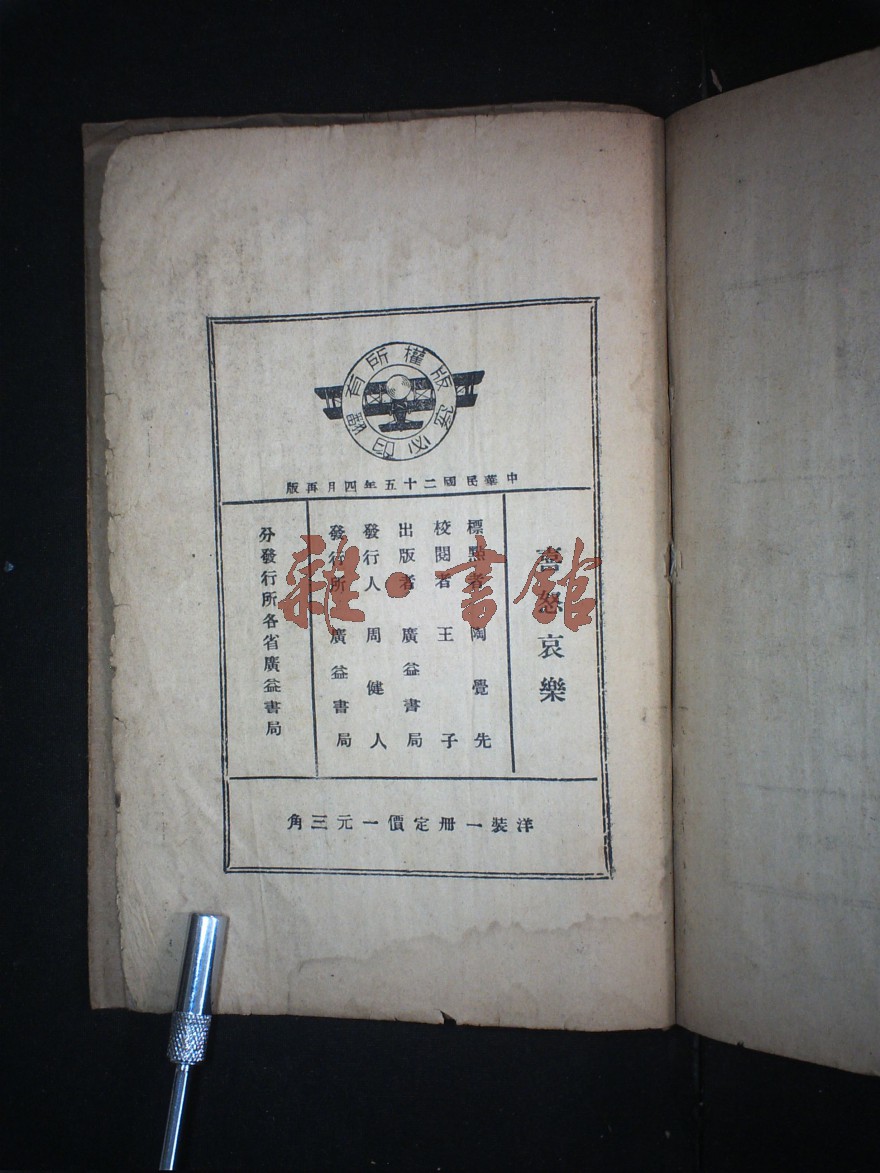 版權所有
翻印必究
中華民國二十五年四月再版
喜怒哀樂
標點者 陶覺先
校閱者 王子
出版者 廣益書局
發行人 周健人
發行所 廣益書局
分發行所各省廣益書局
洋裝一冊定價一元三角
雜·書館